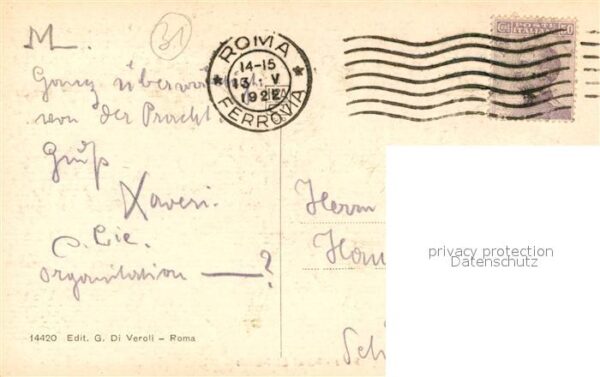 M.
31
Ganz überwältigt
von der Pracht.
Gruß
Xaveri.
Lic.
organisation — ?
ROMA
14-15
13 V
1922
FERROVIA
POSTE ITALIANE
50
Herrn
Han
Sch
privacy protection
Datenschutz
14420 Edit. G. Di Veroli – Roma